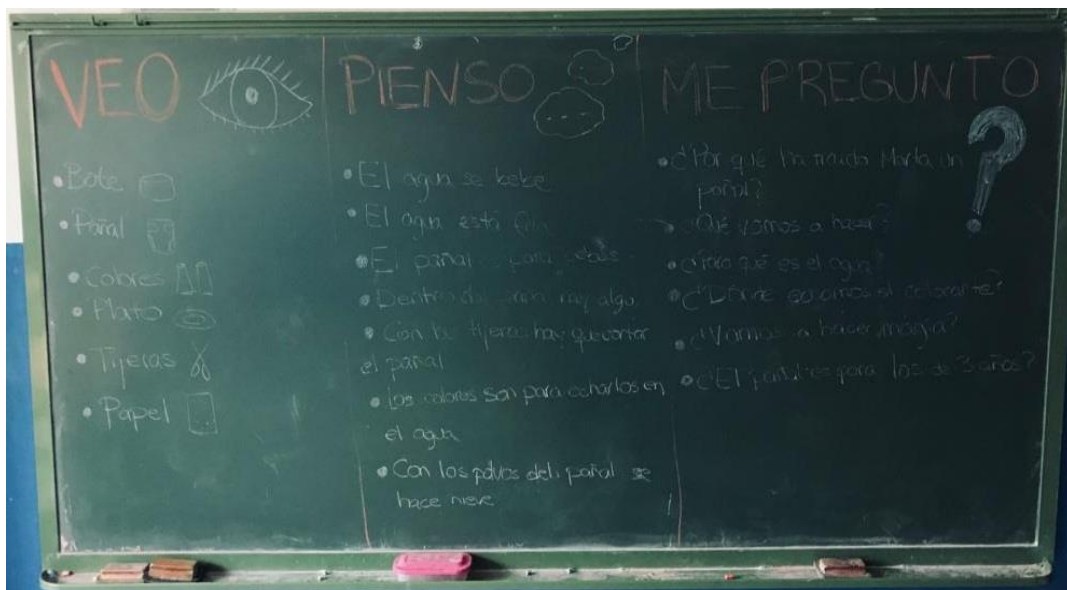 VEO
• Bote
• Pañal
• Colores
• Plato
• Tijeras
• Papel
PIENSO
• El agua se bebe
• El agua está fría
• El pañal para
• Dentro hay algo
• Con las tijeras hay que cortar
el pañal
• Los colores son para echarlos en
el agua
• Con los polvos del pañal se
hace nieve
ME PREGUNTO
?
• ¿Por qué ha traído Marta un
pañal?
¿Qué vamos a hacer?
• ¿Para qué es el agua
• ¿Dónde echamos el colorante?
• ¿Vamos a hacer magia?
• ¿El pañal es para los de 3 años?